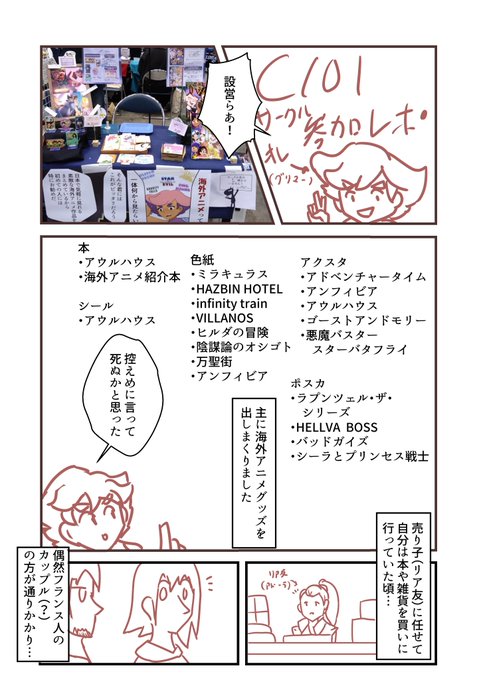 C101
サークル参加レポ
オレ→
(グリミー)
設営らあ！
海外アニメって
本
・アウルハウス
・海外アニメ紹介本
シール
・アウルハウス
色紙
・ミラキュラス
・HAZBIN HOTEL
・infinity train
・VILLANOS
・ヒルダの冒険
・陰謀論のオシゴト
・万聖街
・アンフィビア
アクスタ
・アドベンチャータイム
・アンフィビア
・アウルハウス
・ゴーストアンドモリー
・悪魔バスター
スターバタフライ
ポスカ
・ラプンツェル・ザ・
シリーズ
・HELLVA BOSS
・バッドガイズ
・シーラとプリンセス戦士
主に海外アニメグッズを
出しまくりました
控えめに言って
死ぬかと思った
売り子(リア友)に任せて
自分は本や雑貨を買いに
行っていた頃…
リア友
偶然フランス人の
カップル(？)
の方が通りかかり…